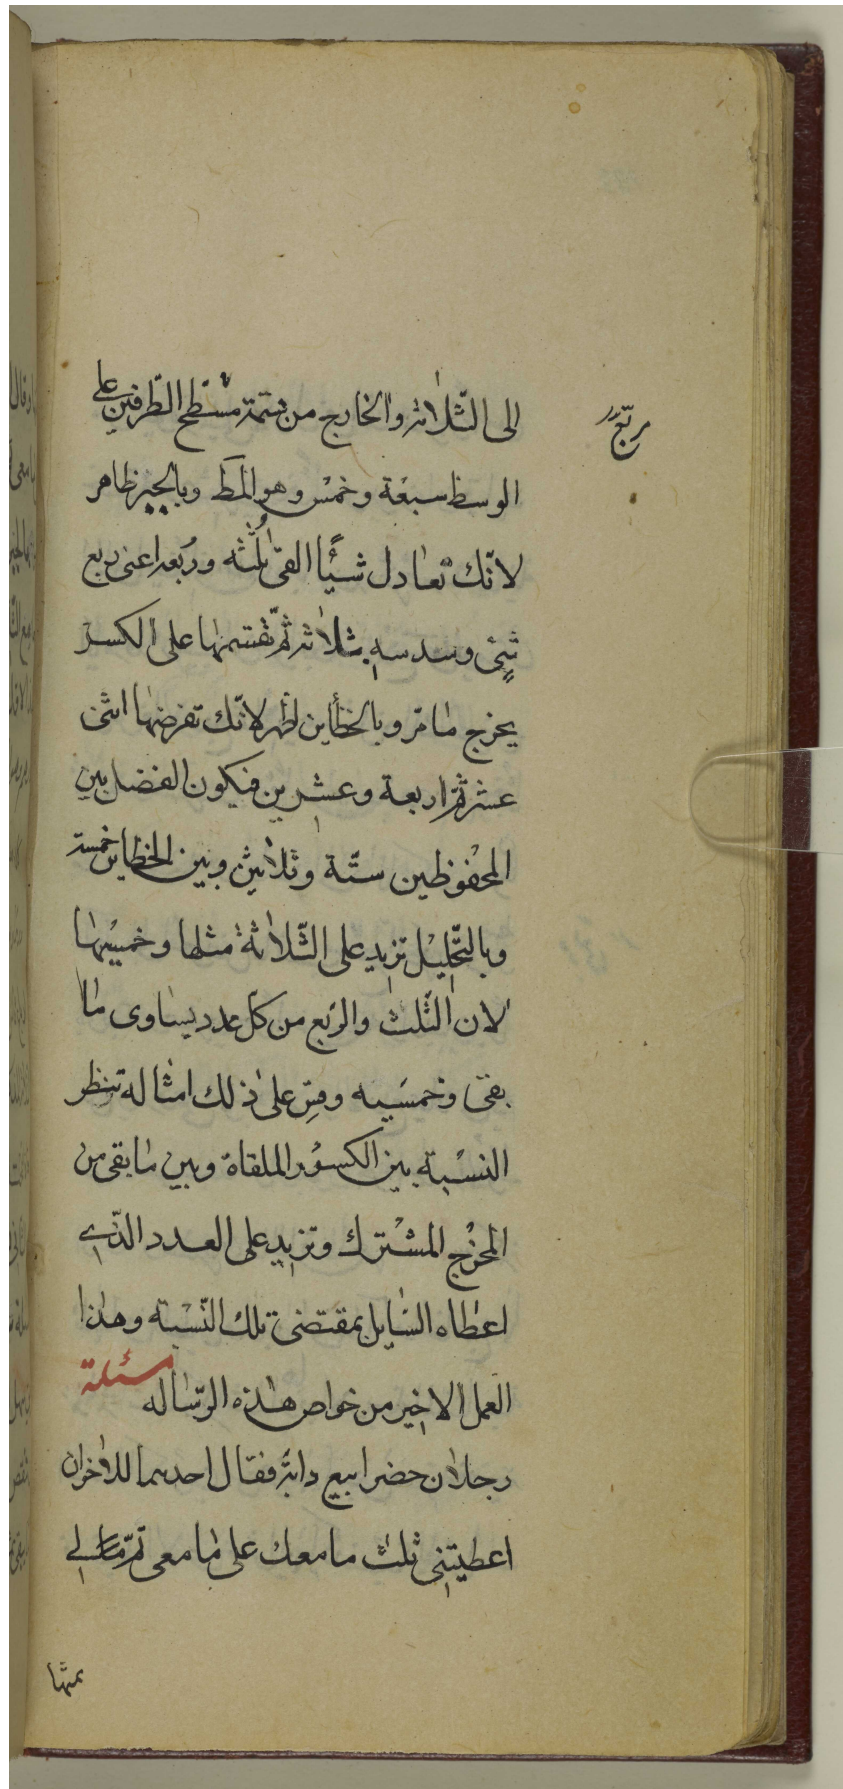 الى الثّلاثة والخارج من قسمة مسطّح الطّرفين على
الوسط سبعة وخمس وهو المط وبالجبر ظاهر
لانّك تعادل شيئًا القى ثلثه وربعه اعنى ربع
شئ وسدسه بثلاثة ثمّ تقسمها على الكسر
يخرج ما مرّ وبالخطأين اظهر لانّك تفرضها اثنى
عشر ثمّ اربعة وعشرين فيكون الفضل بين
المحفوظين ستّة وثلاثين وبين الخطاين خمسة
وبالتّحليل تزيد على الثّلاثة مثلها وخمسيها
لان الثّلث والرّبع من كلّ عدد يساوى ما
بقى وخمسيه وقس على ذلك امثاله تنظر
النسبة بين الكسور الملقاة وبين ما بقى من
المخرج المشترك وتزيد على العدد الذى
اعطاه السّايل بمقتضى تلك النّسبة وهذا
العمل الاخير من خواص هذه الرّسالة مسئلة
رجلان حضرا بيع دابّة فقال احدهما للاخر ان
اعطيتنى ثلث ما معك على ما معى تمّ لى
ثمنها